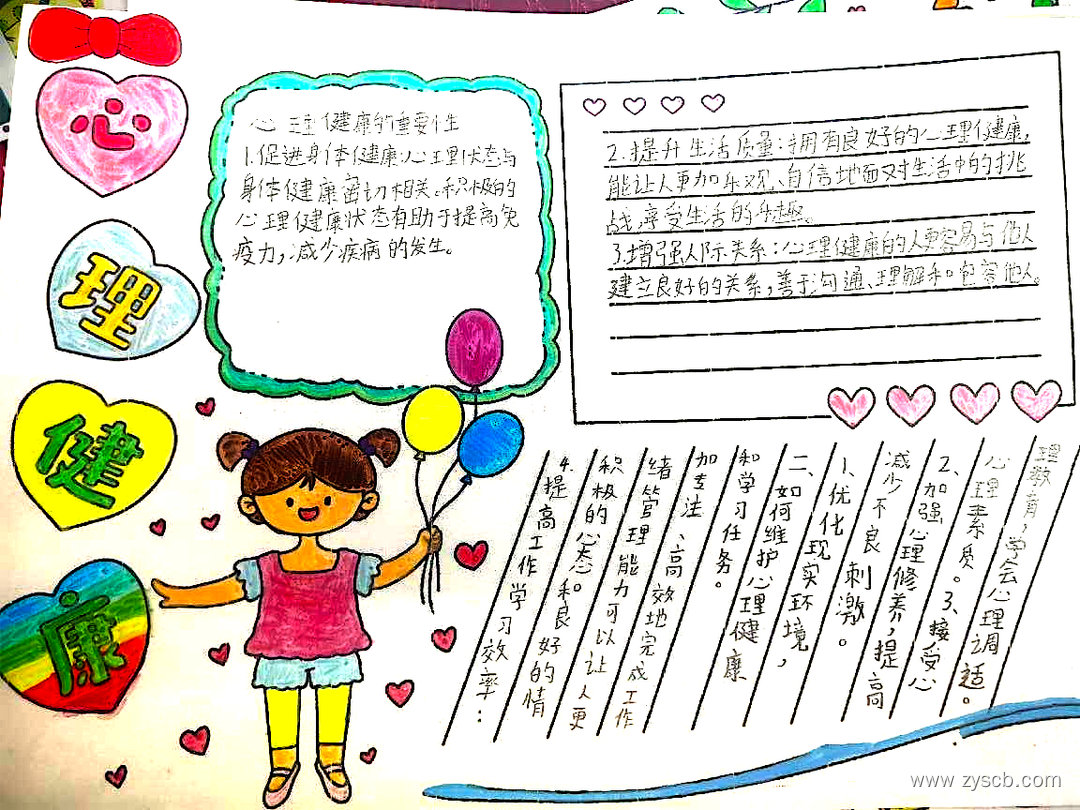 心
理
健
康
心理健康的重要性
1.促进身体健康:心理状态与
身体健康密切相关。积极的
心理健康状态有助于提高免
疫力,减少疾病的发生。
2.提升生活质量:拥有良好的心理健康,
能让人更加乐观、自信地面对生活中的挑
战,享受生活的乐趣。
3.增强人际关系:心理健康的人更容易与他人
建立良好的关系,善于沟通、理解和包容他人。
4.提高工作学习效率:
积极的心态和良好的情
绪管理能力可以让人更
加专注、高效地完成工作
和学习任务。
二、如何维护心理健康
1、优化现实环境,
减少不良刺激。
2、加强心理修养,提高
心理素质。3、接受心
理教育,学会心理调适。
www.zyscb.com